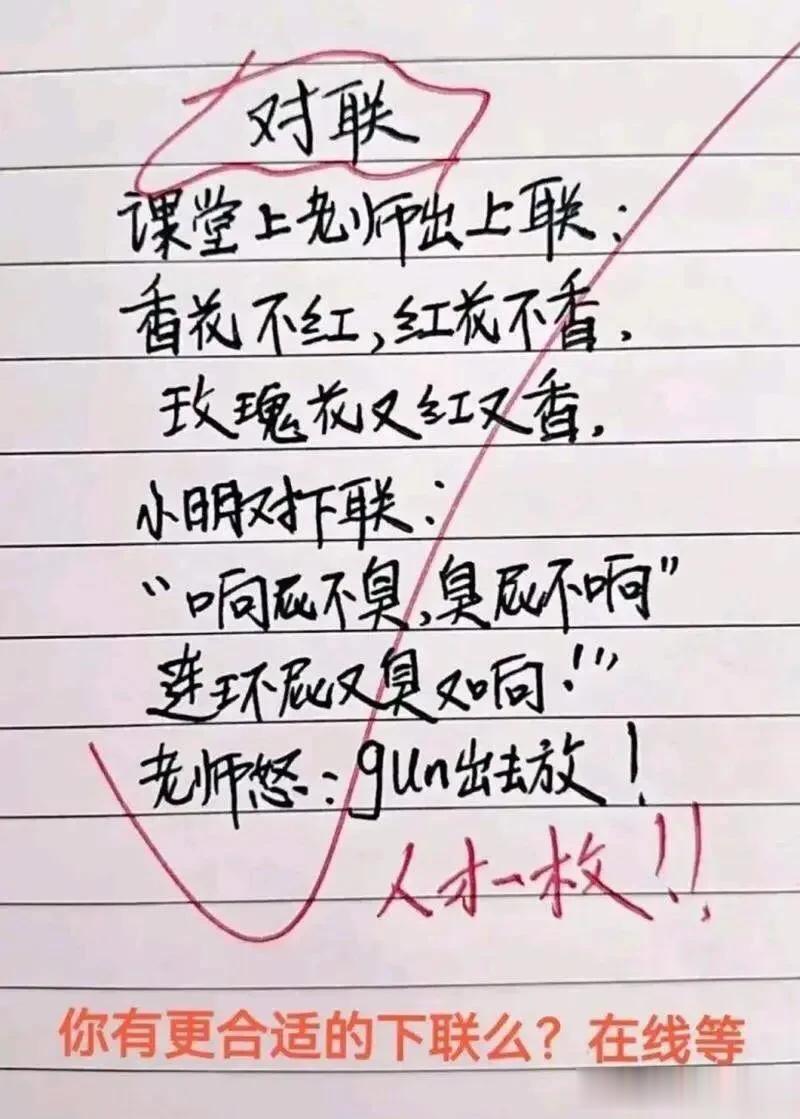 对联
课堂上老师出上联:
香花不红,红花不香,
玫瑰花又红又香,
小明对下联:
“响屁不臭,臭屁不响”
连环屁又臭又响!”
老师怒:gun出去放!
人才一枚!!
你有更合适的下联么?在线等